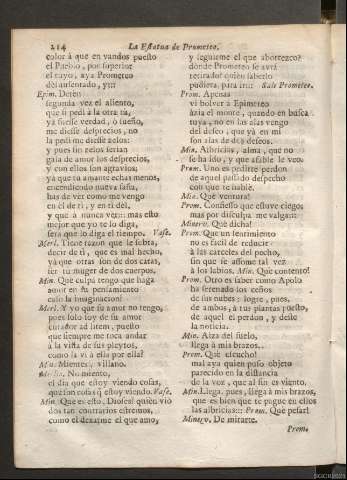 214
La Estatua de Prometeo.
color à que en vandos puesto
el Pueblo, por superior
el tuyo, aya Prometeo
desausentado, y
Epim. Deten
segunda vez el aliento,
que si pedi à la otra ra,
ya fuesse verdad, ò sueño,
me diesse desprecios, no
la pedi me diesse zelos:
y pues sin zelos serian
gala de amor los desprecios,
y con ellos son agravios,
ya que tu amante echas menos,
encendiendo nueva saña,
has de vèr como me vengo
en èl de ti, y en ti dèl,
y que à nunca mas esto
mejor que yo te lo diga,
serà que lo diga el tiempo. Vase.
Merl. Tiene razon que le sobra,
decir de ti, que es mal hecho,
yà que otras son de dos caras,
ser tu muger de dos cuerpos.
Min. Què culpa tengo que haga
amor en su pensamiento
caso la imaginacion?
Merl. Y yo que su amor no tengo,
pues solo soy de su amor
curador ad litem, puesto
que siempre me toca andar
à la vista de sus pleytos,
como la vi à ella por ella?
Min. Mientes, villano.
Merlin. No miento,
el dia que estoy viendo cosas,
que son cosas q estoy viendo. Vase.
Min. Què es esto, Dioses! quien viò
dos tan contrarios estremos,
como el dexarme el que amo,
y seguirme el que aborrezco?
donde Prometeo se avrà
retirado? quien saberlo
pudiera, para ir Sale Prometeo.
Prom. Apenas
vi bolver à Epimeteo
àzia el monte, quando en busca
tuya, no en las alas vengo
del deseo, que yà en mi
son alas de dos deseos.
Min. Albricias, alma, que no
se ha ido, y que afable le veo.
Prom. Uno es pedirte perdon
de aquel passado despecho
con que te hablè.
Min. Què ventura!
Prom. Confiesso que estuve ciego;
mas por disculpa me valga
Minerv. Què dicha!
Prom. Que un sentimiento
no es facil de reducir
à las carceles del pecho,
sin que se assome tal vez
à los labios. Min. Què contento!
Prom. Otro es saber como Apolo
ha serenado los ceños
de sus nubes: logre, pues,
de ambos, à tus plantas puesto,
de aquel el perdon, y deste
la noticia.
Min. Alza del suelo,
llega à mis brazos.
Prom. Què escucho!
mal aya quien puso objeto
parecido en la distancia
de la voz, que al fin es viento.
Min. Llega, pues, llega à mis brazos,
que es bien que te pague en ellos
las albricias Prom. Què pesar!
Minerv. De mirarte.
Prom.